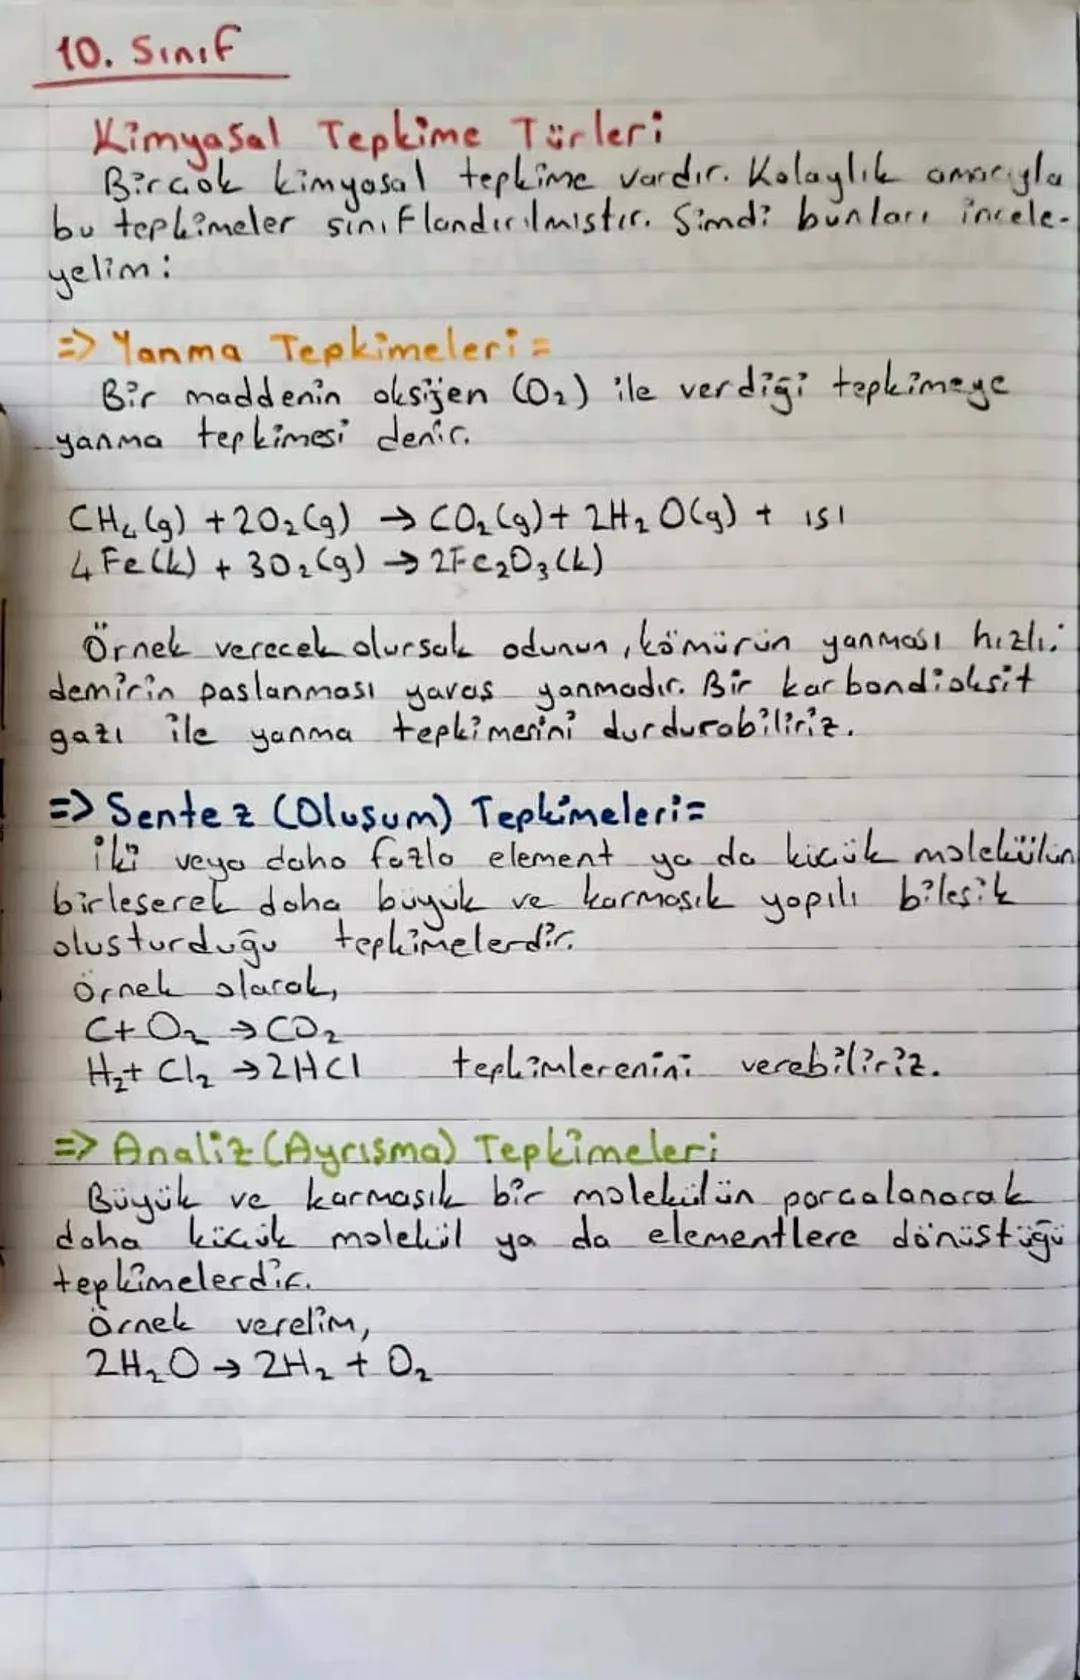 10. Sınıf
Kimyasal Tepkime Türleri
Birçok kimyasal tepkime vardır. Kolaylık amacıyla
bu tepkimeler sınıflandırılmıştır. Şimdi bunları incele-
yelim:
=> Yanma Tepkimeleri=
Bir maddenin oksijen (O₂) ile verdiği tepkimeye
yanma tepkimesi denir.
CH₄(g) + 2O₂(g) → CO₂(g) + 2H₂O(g) + ısı
4Fe(k) + 3O₂(g) → 2Fe₂O₃(k)
Örnek verecek olursak odunun, kömürün yanması hızlı;
demirin paslanması yavaş yanmadır. Bir karbondioksit
gazı ile yanma tepkimesini durdurabiliriz.
=> Sentez (Oluşum) Tepkimeleri=
İki veya daha fazla element ya da küçük molekülün
birleşerek daha büyük ve karmaşık yapılı bileşik
oluşturduğu tepkimelerdir.
Örnek olarak,
C + O₂ → CO₂
H₂ + Cl₂ → 2HCl tepkimlerenini verebiliriz.
=> Analiz (Ayrışma) Tepkimeleri
Büyük ve karmaşık bir molekülün parçalanarak
daha küçük molekül ya da elementlere dönüştüğü
tepkimelerdir.
Örnek verelim,
2H₂O → 2H₂ + O₂